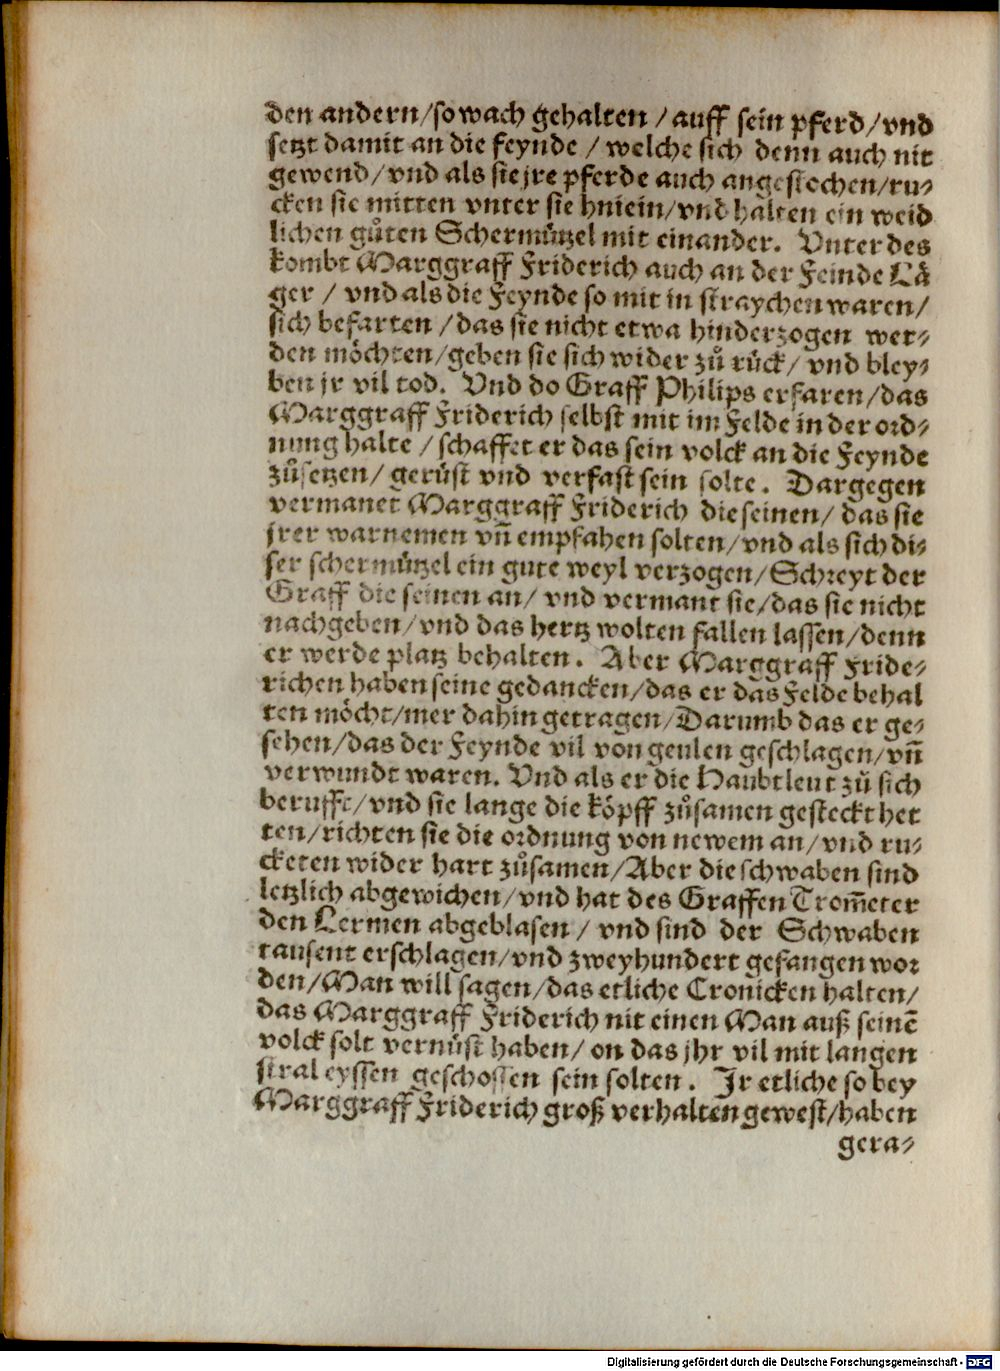 den andern/so wach gehalten / auff sein pferd/vnd
setzt damit an die feynde / welche sich denn auch nit
gewend/vnd als sie jre pferde auch angestochen/ru⸗
cken sie mitten vnter sie hniein/vnd halten ein weid
lichen gůten Schermützel mit einander. Vnter des
kombt Marggraff Friderich auch an der Feinde Lä
ger / vnd als die Feynde so mit in straychen waren/
sich befarten /das sie nicht etwa hinderzogen wer⸗
den möchten/geben sie sich wider zů rück/ vnd bley⸗
ben jr vil tod. Vnd do Graff Philips erfaren/das
Marggraff Friderich selbst mit im Felde in der ord⸗
nung halte / schaffet er das sein volck an die Feynde
zůsetzen/ gerüst vnd verfast sein solte. Dargegen
vermanet Marggraff Friderich die seinen/ das sie
jrer warnemen vñ empfahen solten/vnd als sich di⸗
ser schermützel ein gute weyl verzogen/Schreyt der
Graff die seinen an/ vnd vermant sie/das sie nicht
nachgeben/vnd das hertz wolten fallen lassen/denn
er werde platz behalten. Aber Marggraff Fride⸗
richen haben seine gedancken/das er das Felde behal
ten möcht/mer dahin getragen/Darumb das er ge⸗
sehen/das der Feynde vil von geulen geschlagen/vñ
verwundt waren. Vnd als er die Haubtleut zů sich
berufft/vnd sie lange die köpff zůsamen gesteckt het
ten/richten sie die ordnung von newem an/vnd ru⸗
cketen wider hart zůsamen/Aber die schwaben sind
letzlich abgewichen/vnd hat des Graffen Trom̃eter
den Lermen abgeblasen / vnd sind der Schwaben
tausent erschlagen/vnd zweyhundert gefangen wor
den/Man will sagen/das etliche Cronicken halten/
das Marggraff Friderich nit einen Man auß seinē
volck solt vernüst haben/ on das jhr vil mit langen
stral eyssen geschossen sein solten. Ir etliche so bey
Marggraff Friderich groß verhalten gewest/haben
gera⸗
Digitalisierung gefördert durch die Deutsche Forschungsgemeinschaft - DFG